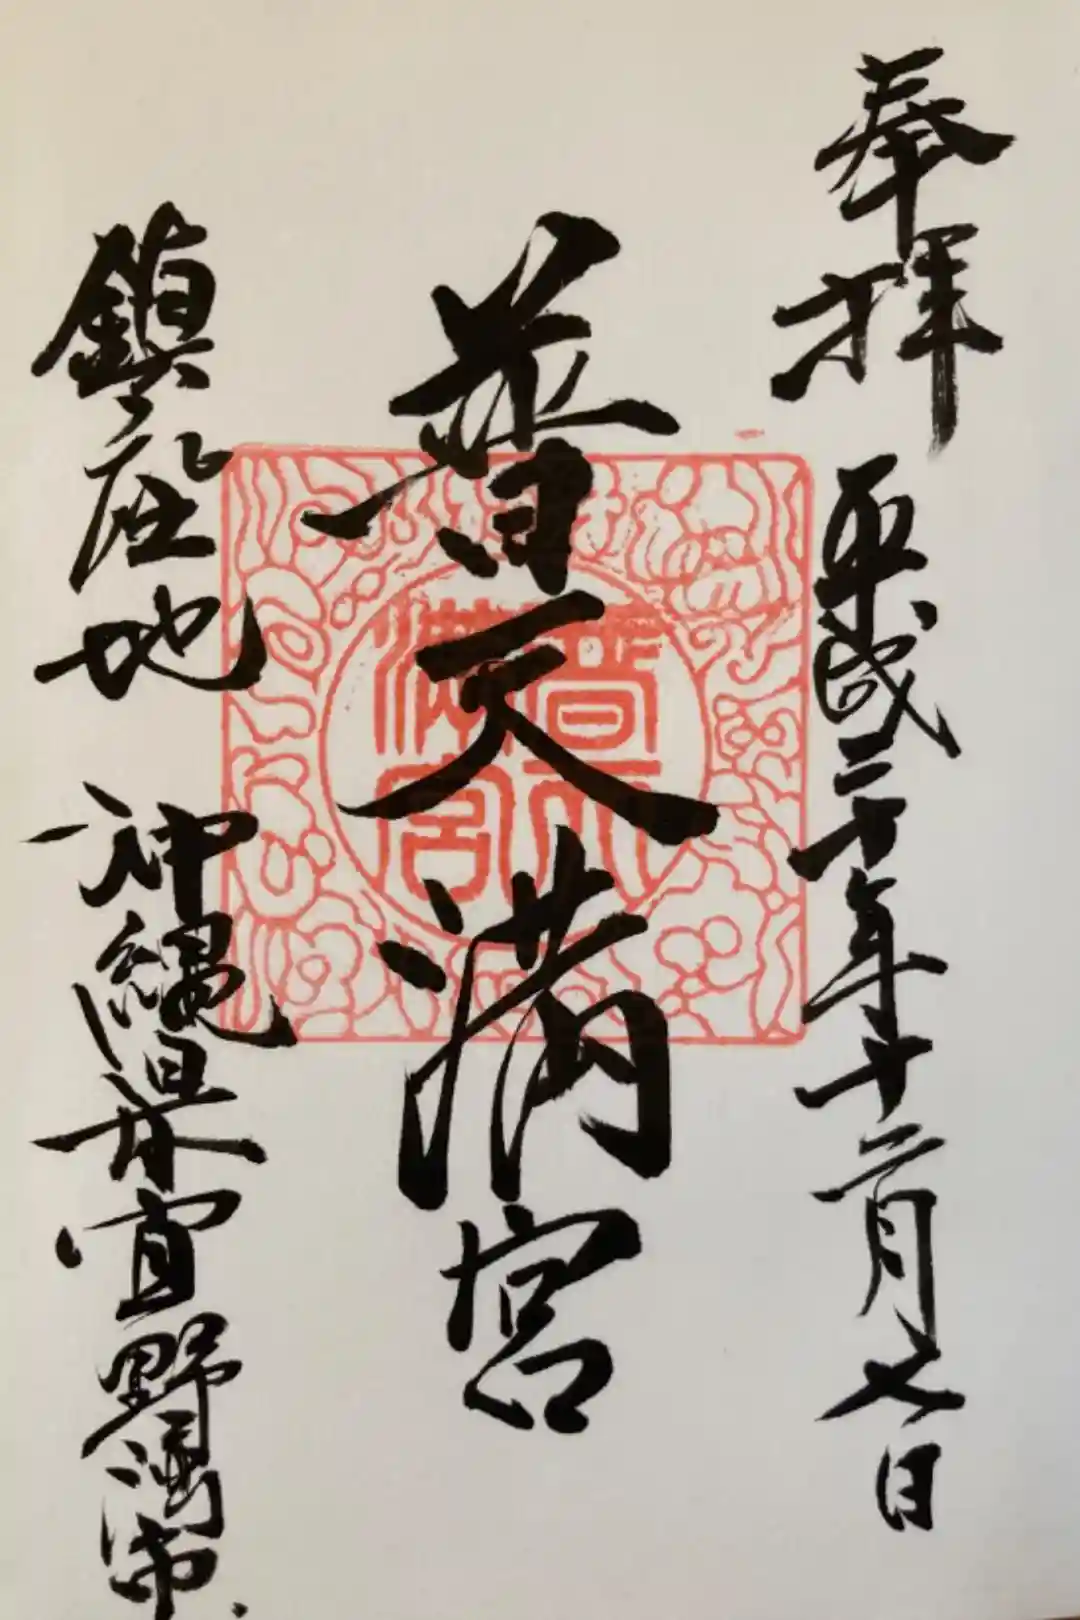 奉拝 平成三十年十二月七日
普天満宮
鎮座地 沖縄県宜野湾市
普天
満宮